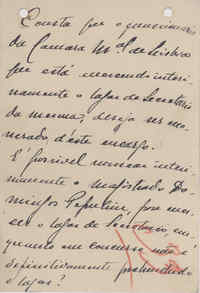 Consta que o funcionario
da Camara M.al de Lisboa
que está exercendo interi-
namente o logar de Secretario
da mesma, deseja ser exo-
nerado, d'éste encargo.
É possivel nomear interi-
namente o magistrado Do-
mingos Pepulim, para exer-
cer o logar de Secretario, em-
quanto em concurso não é
definitivamente preenchido
o logar?